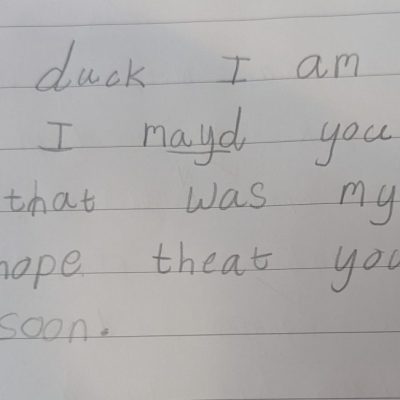 duck I am
I mayd you
that was my
hope theat you
soon.